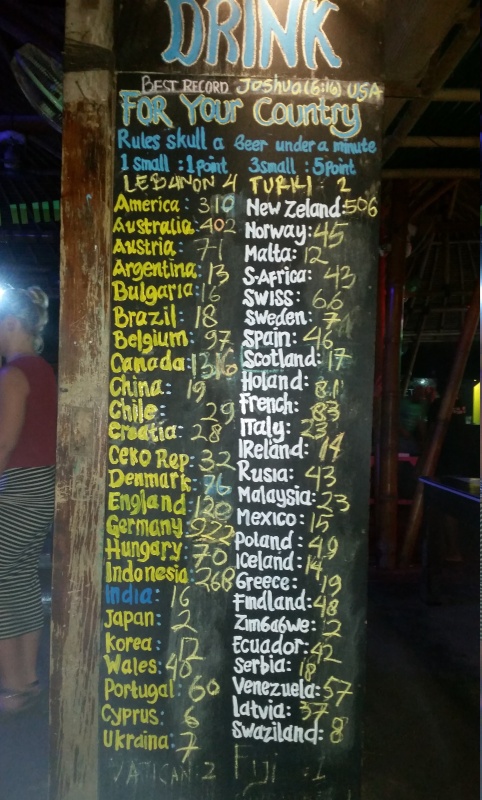 DRINK
BEST RECORD Joshua (6:16) USA
FOR YOUR COUNTRY
Rules skull a Beer under a minute
1 small : 1 point 3 small : 5 point
LEBANON 4 TURKI : 2
America: 310
Australia: 402
Austria: 71
Argentina: 13
Bulgaria: 16
Brazil: 18
Belgium: 97
Canada: 1316
China: 19
Chile: 29
Croatia: 28
Ceko Rep: 32
Denmark: 76
England: 120
Germany 222
Hungary 70
Indonesia 268
India: 16
Japan: 2
Korea: 12
Wales: 40
Portugal: 60
Cyprus: 6
Ukraina: 7
VATICAN: 2
New Zeland: 506
Norway: 45
Malta: 12
S-Africa: 43
Swiss: 66
Sweden: 7
Spain: 46
Scotland: 17
Holand: 81
French: 83
Italy: 23
IReland: 14
Rusia: 43
Malaysia: 23
Mexico: 15
Poland: 49
Iceland: 14
Greece: 19
Findland: 48
Zimbabwe: 2
Ecuador: 42
Serbia: 18
Venezuela: 57
Latvia: 37
Swaziland: 8
FIJI : 1